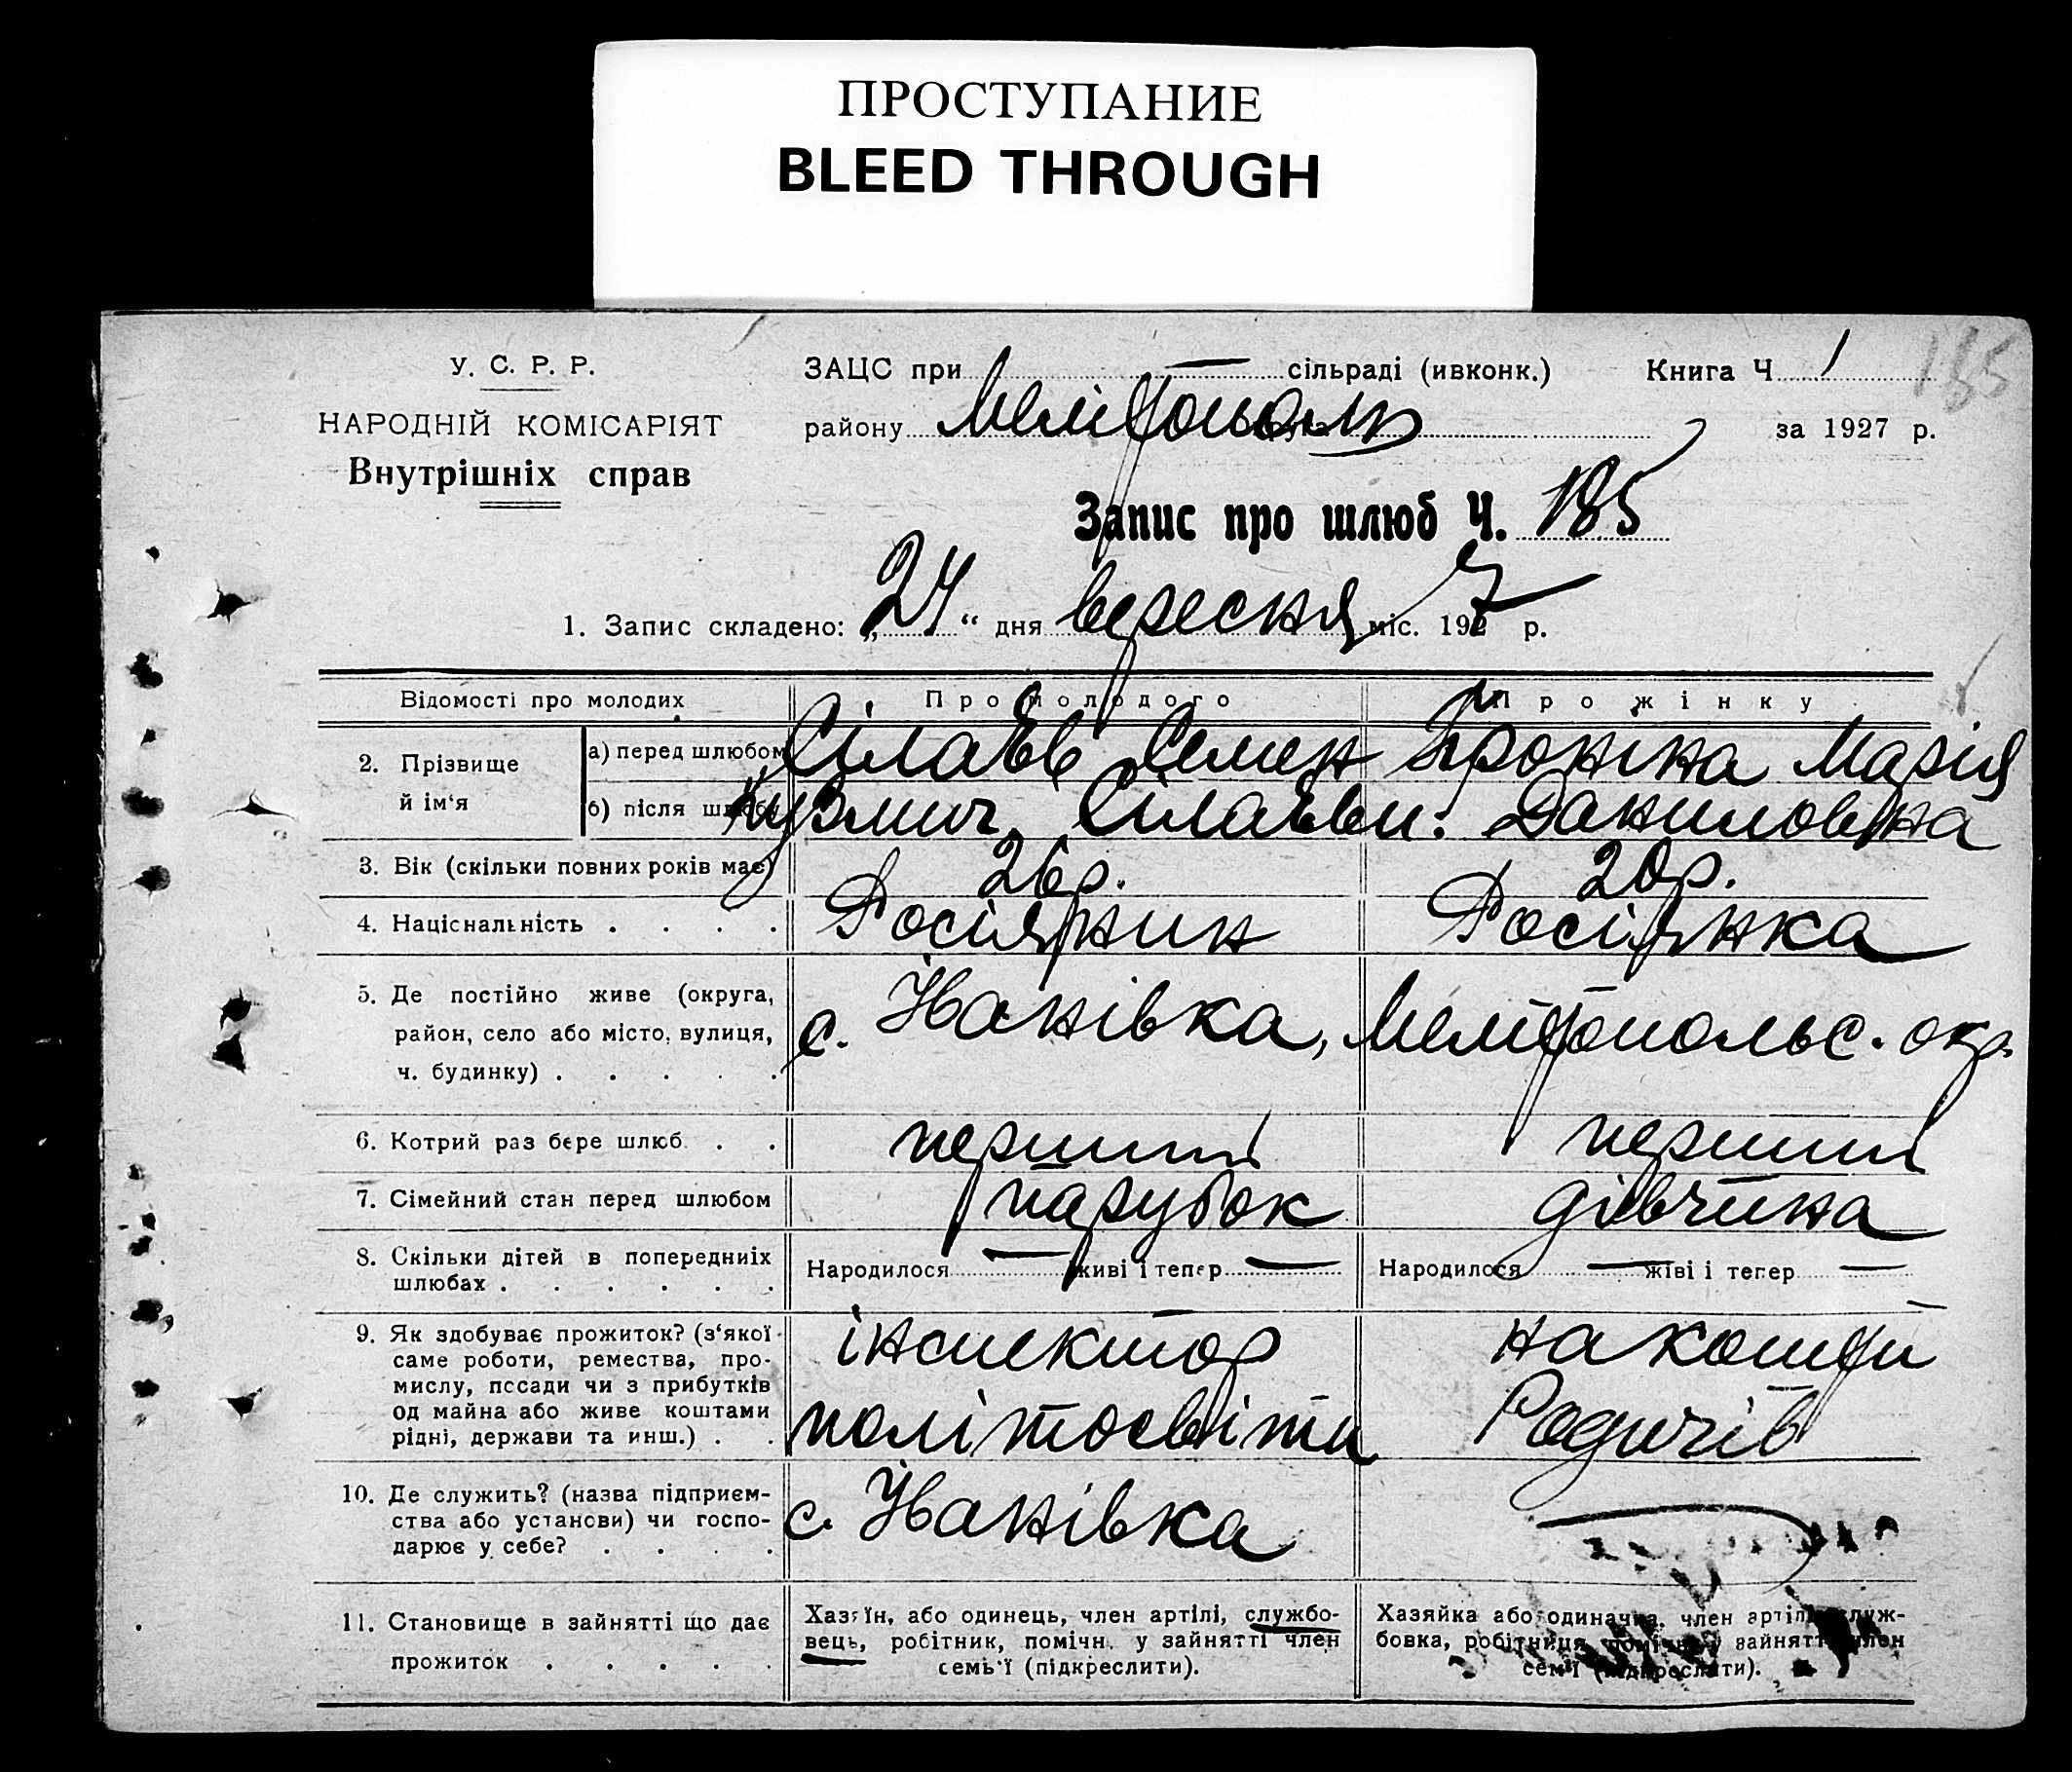 ПРОСТУПАНИЕ
BLEED THROUGH
У. С. Р. Р.
НАРОДНІЙ КОМІСАРІЯТ
Внутрішніх справ
ЗАЦС при — сільраді (ивконк.) Книга Ч 1
185
району Мелітополь за 1927 р.
Запис про шлюб Ч. 185
1. Запис складено: „24“ дня вересня міс. 1927 р.
Відомості про молодих Про молодого Про жінку
2. Прізвище й ім‘я
а) перед шлюбом Сілаєв Семен Проніна Марія
б) після шлюбу Кузмич, Сілаєви. Даниловна
3. Вік (скільки повних років має) 26 р. 20 р.
4. Національність Росіянин Росіянка
5. Де постійно живе (округа,
район, село або місто, вулиця,
ч. будинку)
с. Іванівка, Мелітопольс. окр.
6. Котрий раз бере шлюб перший перший
7. Сімейний стан перед шлюбом парубок дівчина
8. Скільки дітей в попередниіх
шлюбах
Народилося — живі і тепер — Народилося — жіві і тепер —
9. Як здобуває прожиток? (з‘якої
саме роботи, ремества, про-
мислу, пссади чи з прибутків
од майна або живе коштами
рідні, держави та инш.)
інспектор
політосвіти
на кошти
Родичів
10. Де служить? (назва підприєм-
ства або установи) чи госпо-
дарює у себе?
с. Іванівка
11. Становище в зайнятті що дає
прожиток
Хазяїн, або одинець, член артілі, службо-
вець, робітник, помічн. у зайнятті член
семь‘ї (підкреслити).
Хазяйка або одиначка, член артілі, служ-
бовка, робітниця, помічн. у зайнятті член
сем‘ї (підкреслити).